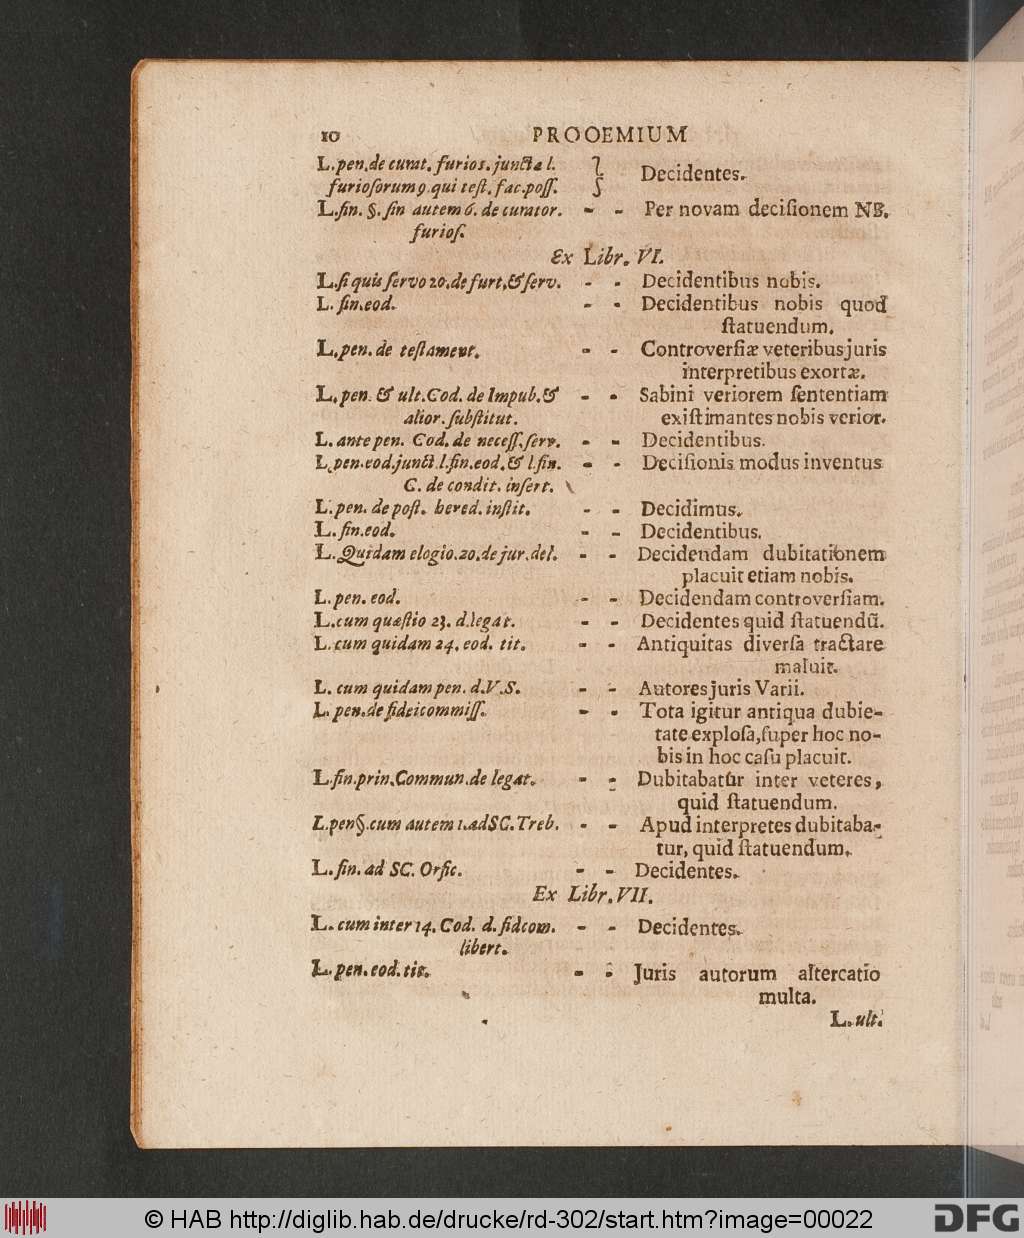 10 PROOEMIUM
L. pen. de curat. furios. juncta l. } Decidentes.
furiosorum 9. qui test. fac. poss.
L. fin. §. fin autem 6. de curator. - - Per novam decisionem NB.
furios.
Ex Libr. VI.
L. si quis servo 20. de furt, & serv. - - Decidentibus nobis.
L. fin. eod. - - Decidentibus nobis quod
statuendum.
L. pen. de testament. - - Controversiæ veteribus juris
interpretibus exortæ.
L. pen. & ult. Cod. de Impub. & - - Sabini veriorem sententiam
alior. substitut. existimantes nobis verior.
L. antepen. Cod. de necess. serv. - - Decidentibus.
L. pen. eod. junct. l. fin. eod. & l. fin. - - Decisionis modus inventus
C. de condit. insert.
L. pen. de post. hered. instit. - - Decidimus.
L. fin. eod. - - Decidentibus.
L. Quidam elogio. 20. de jur. del. - - Decidendam dubitationem
placuit etiam nobis.
L. pen. eod. - - Decidendam controversiam.
L. cum quæstio 23. d. legat. - - Decidentes quid statuendũ.
L. cum quidam 24. eod. tit. - - Antiquitas diversa tractare
maluit.
L. cum quidam pen. d. V. S. - - Autores juris Varii.
L. pen. de fideicommiss. - - Tota igitur antiqua dubie-
tate explosa, super hoc no-
bis in hoc casu placuit.
L. fin. prin. Commun. de legat. - - Dubitabatur inter veteres,
quid statuendum.
L. pen §. cum autem 1. ad SC. Treb. - - Apud interpretes dubitaba-
tur, quid statuendum.
L. fin. ad SC. Orfic. - - Decidentes.
Ex Libr. VII.
L. cum inter 14. Cod. d. fidcom. - - Decidentes.
libert.
L. pen. eod. tit. - - Juris autorum altercatio
multa.
L. ult.
© HAB http://diglib.hab.de/drucke/rd-302/start.htm?image=00022 DFG